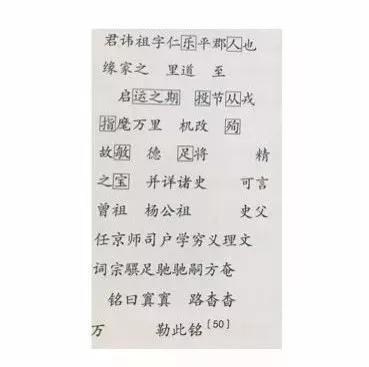 君讳祖字仁乐平郡人也
缘家之 里道 至
启运之期 授节从戎
指麾万里 机改 殉
故敏 德 足将 精
之宝 并详诸史 可言
曾祖 杨公祖 史父
任京师司户学穷义理文
词宗骥足驰驰嗣方奄
铭曰寘寘 路杳杳
万 勒此铭[50]